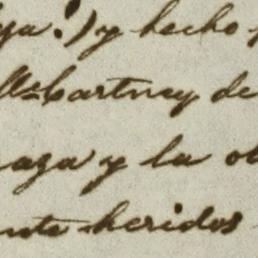 ya!) y hecho
McCartney de
aza y la
nte heridos